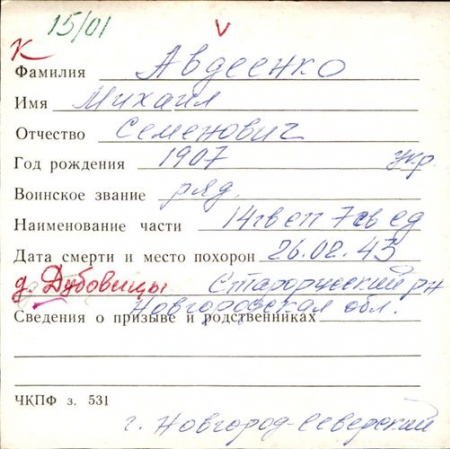 15/01 V
К
Фамилия Авдеенко
Имя Михаил
Отчество Семенович
Год рождения 1907 укр.
Воинское звание ряд.
Наименование части 14гв сп 7гв сд
Дата смерти и место похорон 26.02.43
д. Дубовицы Старорусский р-н
Новгородская обл.
Сведения о призыве и родственниках
ЧКПФ з. 531
г. Новгород-Северский